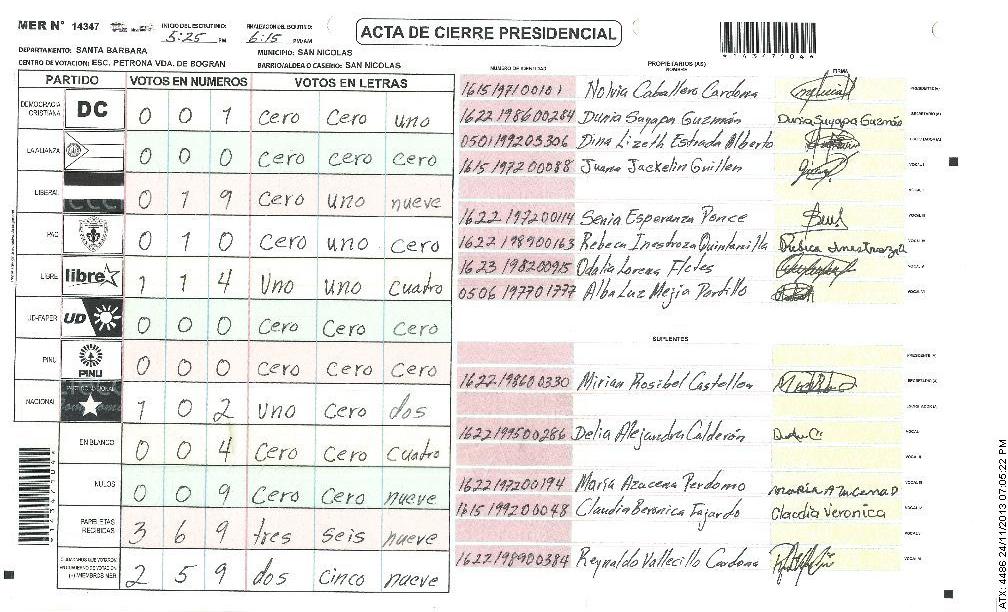 MER N° 14347 INICIO DEL ESCRUTINIO: 5:25 PM FINALIZACION DEL ESCRUTINIO: 6:15 PM/AM
ACTA DE CIERRE PRESIDENCIAL
DEPARTAMENTO: SANTA BARBARA MUNICIPIO: SAN NICOLAS
CENTRO DE VOTACION: ESC. PETRONA VDA. DE BOGRAN BARRIO/ALDEA O CASERIO: SAN NICOLAS
PARTIDO VOTOS EN NUMEROS VOTOS EN LETRAS
DEMOCRACIA CRISTIANA DC 0 0 1 cero cero uno
LA ALIANZA 0 0 0 cero cero cero
LIBERAL 0 1 9 cero uno nueve
PAC 0 1 0 cero uno cero
LIBRE libre 1 1 4 uno uno cuatro
UD-FAPER UD 0 0 0 cero cero cero
PINU PINU 0 0 0 cero cero cero
NACIONAL 1 0 2 uno cero dos
EN BLANCO 0 0 4 cero cero cuatro
NULOS 0 0 9 cero cero nueve
PAPELETAS RECIBIDAS 3 6 9 tres seis nueve
CIUDADANOS QUE VOTARON EN CUADERNO DE VOTACION (+) MIEMBROS MER 2 5 9 dos cinco nueve
NUMERO DE IDENTIDAD PROPIETARIOS (AS) NOMBRES FIRMA
1615197100101 Nolvia Caballero Cardona PRESIDENTE (A)
1622198600284 Dunia Suyapa Guzmán Dunia Suyapa Guzmán SECRETARIO (A)
0501199203306 Dina Lizeth Estrada Alberto
1615197200088 Juana Jackelin Guillen VOCAL I
VOCAL II
1622197200114 Senia Esperanza Ponce VOCAL III
1622198900163 Rebeca Inestroza Quintanilla Rebeca Inestroza Q VOCAL IV
1623198200915 Odalia Lorena Flores VOCAL V
0506197701777 Alba Luz Mejia Portillo VOCAL VI
SUPLENTES
PRESIDENTE (A)
1622198600330 Mirian Rosibel Castellon SECRETARIO (A)
1622199500286 Delia Alejandra Calderón VOCAL I
VOCAL II
1622197200194 María Azucena Perdomo María Azucena P VOCAL III
1615199200048 Claudia Beronica Fajardo Claudia Veronica
1622198900384 Reynaldo Vallecillo Cardona
ATX: 4486 24/11/2013 07:05:22 PM